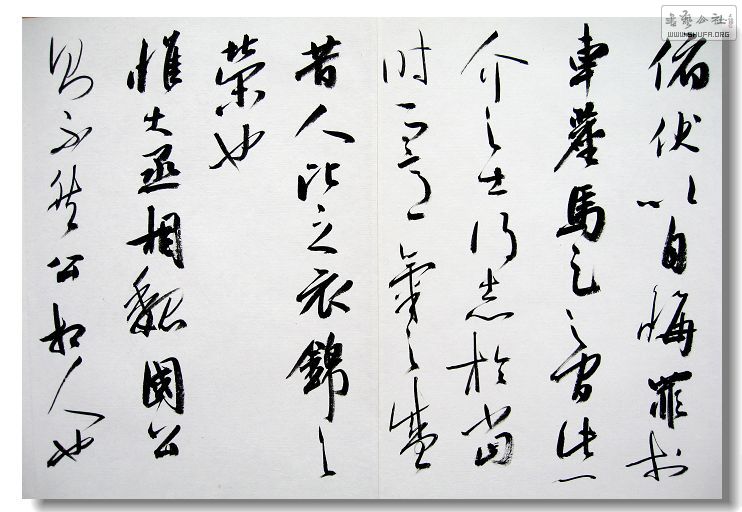 俯伏以自悔罪於
車塵馬足之間此一
介之士得志於當
時而意氣之盛
昔人比之衣錦之
榮也
惟大丞相魏國公
則不然公相人也
书艺公社
WWW.SHUFA.ORG